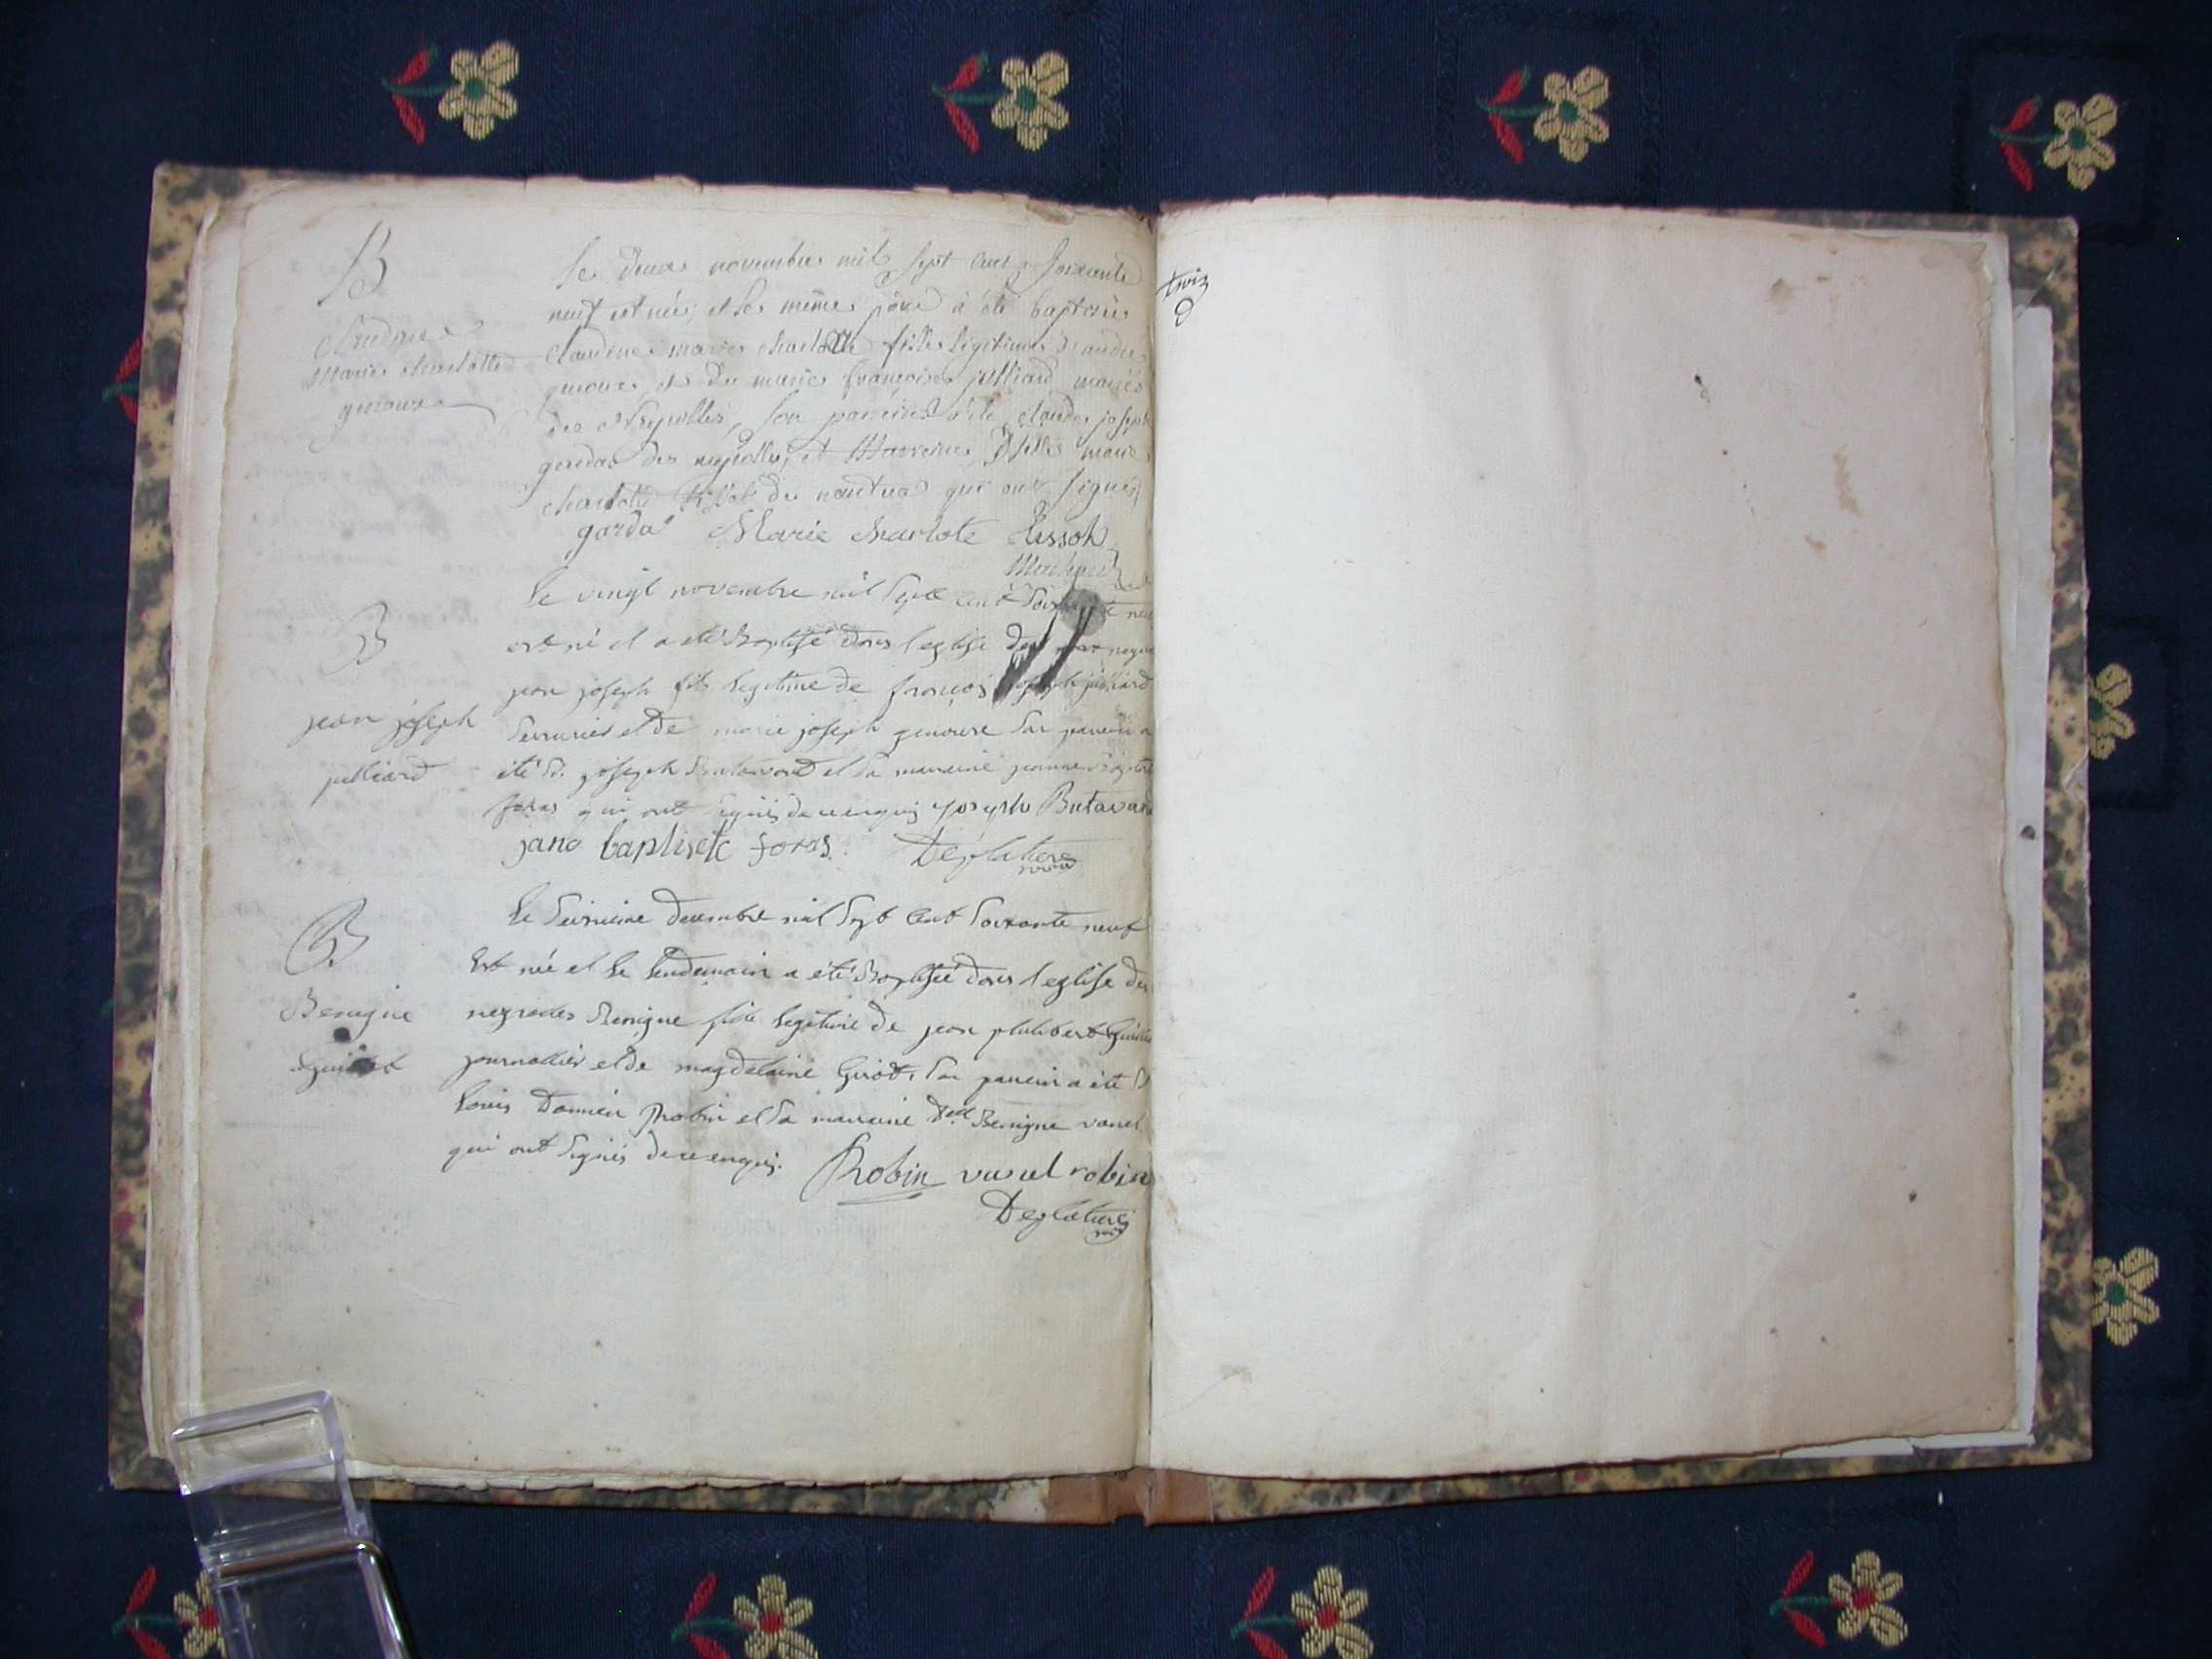 B
Claudine
marie charlotte
genoux
Le deux novembre mil sept cent soixante
neuf est née, et le même jour a été baptisée
claudine marie charlotte fille legitime d'andré
genoux et de marie françoise julliard mariés
des neyrolles, son parrein a été claude joseph
gerdas des neyrolles, et marreine Dlle marie
charlotte tissot de nantua qui ont signés
garda Marie charlote tissoh
B
jean joseph
julliard
Le vingt novembre mil sept cent soixante neuf
est né et a été Baptisé dans l'eglise des
jean joseph fils legitime de françois joseph julliard
serrurier et de marie joseph genoux son parrein a
été S. joseph Butavand et sa marreine jeanne Baptiste
foras qui ont signés de ce enquis joseph Butavand
jane baptisete foras. Deglatiere
vicaire
B
Benigne
Guillot
Le seizieme decembre mil sept cent soixante neuf
Est née et le lendemain a été Baptisée dans l'eglise des
neyroles Benigne fille legitime de jean philibert
journallier et de magdelaine Girod, son parrein a été S
Louis Damien Robin et sa marreine Delle Benigne vanel
qui ont signés de ce enquis. Robin vanel robin
Deglatiere